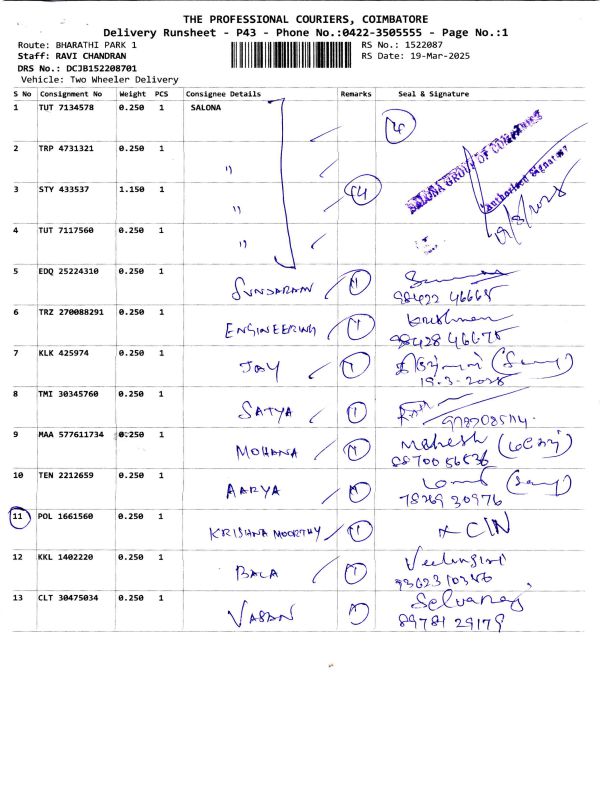 THE PROFESSIONAL COURIERS, COIMBATORE
Delivery Runsheet - P43 - Phone No.:0422-3505555 - Page No.:1
Route: BHARATHI PARK 1 RS No.: 1522087
Staff: RAVI CHANDRAN RS Date: 19-Mar-2025
DRS No.: DCJB152208701
Vehicle: Two Wheeler Delivery
S No Consignment No Weight PCS Consignee Details Remarks Seal & Signature
1 TUT 7134578 0.250 1 SALONA 4
SALONA GROUP OF COMPANIES
2 TRP 4731321 0.250 1 "
Authorised Signatory
3 STY 433537 1.150 1 "
4 TUT 7117560 0.250 1 "
5 EDQ 25224310 0.250 1 SUNDARAM 1
98422 46668
6 TRZ 270088291 0.250 1 ENGINEERING 1 Krishnan
98428 46675
7 KLK 425974 0.250 1 JOY 1
19.3.2025
8 TMI 30345760 0.250 1 SATYA 1
9 MAA 577611734 0.250 1 MOHANA 1 Mahesh
88700 56836
10 TEN 2212659 0.250 1 AARYA 1
78269 30976
11 POL 1661560 0.250 1 KRISHNA MOORTHY 1
12 KKL 1402220 0.250 1 BALA 1
9362310346
13 CLT 30475034 0.250 1 VASAN 1 Selvaraj
89781 29179